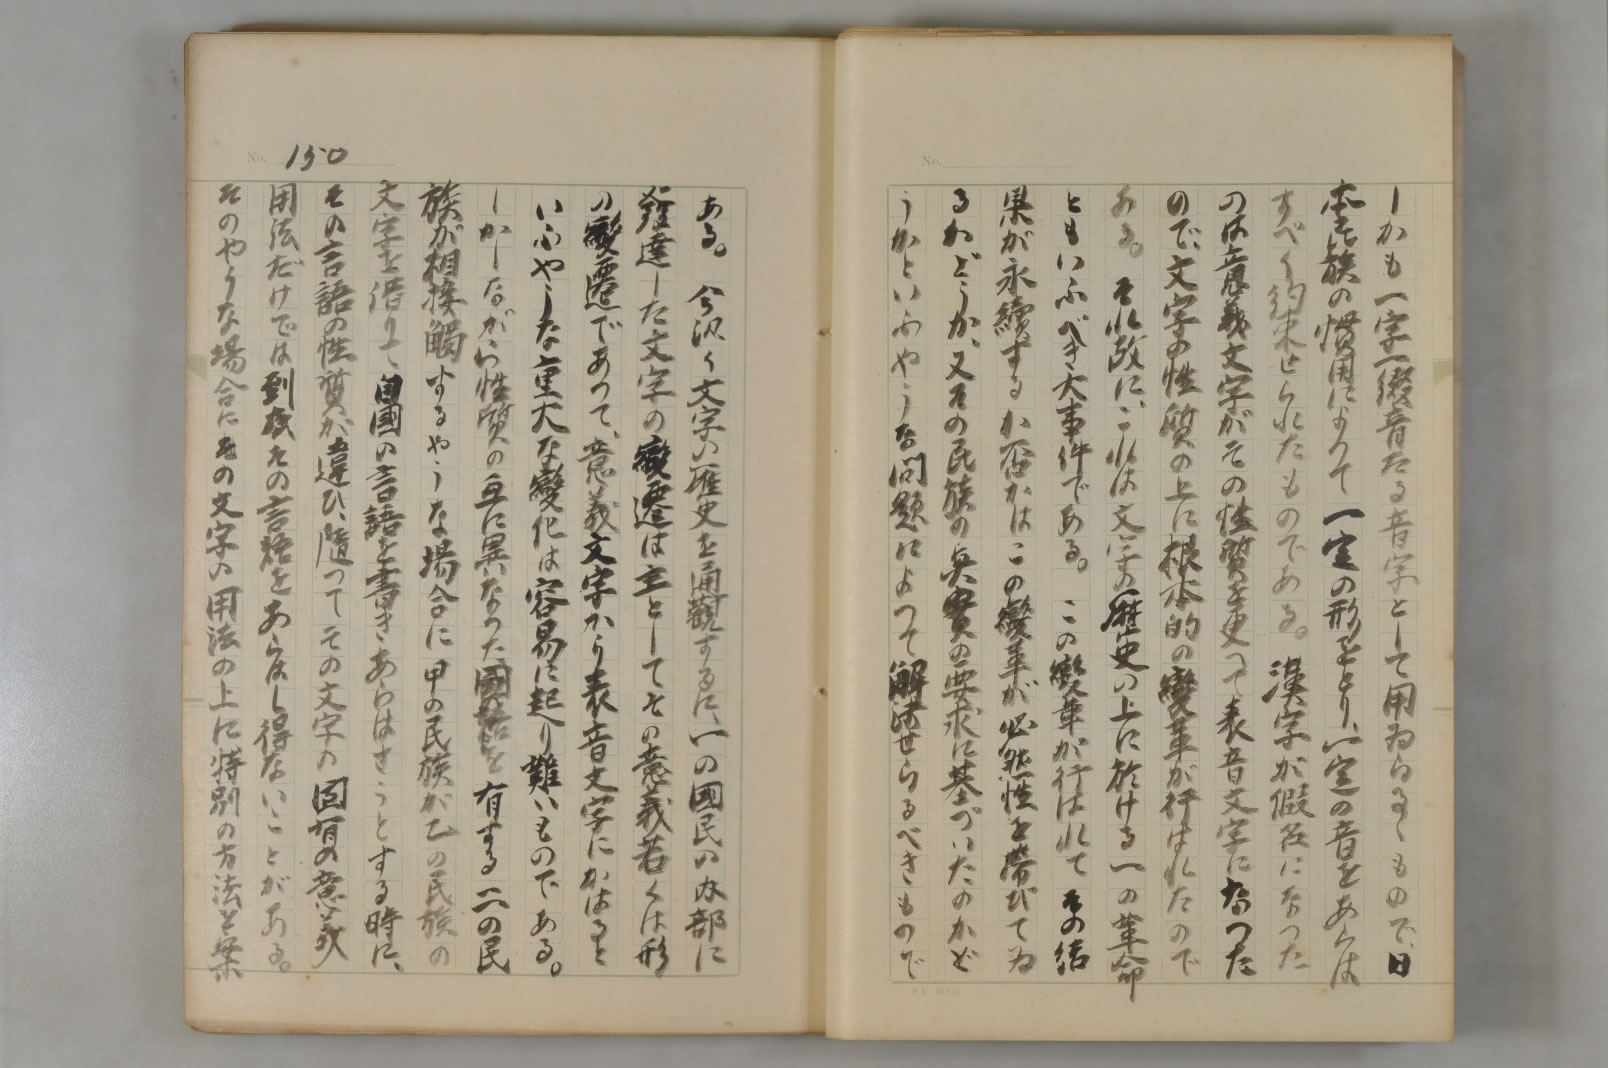 しかも一字一綴音たる音字として用ゐらるゝもので、日
本民族の慣用によつて一定の形をとり、一定の音をあらは
すべく約束せられたものである。漢字が假名になつた
のは意義文字がその性質を更へて表音文字になつた
ので、文字の性質の上に根本的の變革が行はれたので
ある。それ故に、これは文字の歴史の上に於ける一の革命
ともいふべき大事件である。この變革が行はれて その結
果が永續するか否かはこの變革が必然性を帶びてゐ
るかどうか、又その民族の眞實の要求に基づいたのかど
うかといふやうな問題によつて解決せらるべきもので
No. 150
ある。今汎く文字の歴史を通觀するに、一の國民の内部に
發達した文字の變遷は主としてその意義若くは形
の變遷であつて、意義文字から表音文字にかはると
いふやうな重大な變化は容易に起り難いものである。
しかしながら性質の互に異なつた國語を有する二の民
族が相接觸するやうな場合に甲の民族が乙の民族の
文字を借りて自國の言語を書きあらはさうとする時に、
その言語の性質が違ひ、隨つてその文字の固有の意義
用法だけでは到底その言語をあらはし得ないことがある。
そのやうな場合にその文字の用法の上に特別の方法を案